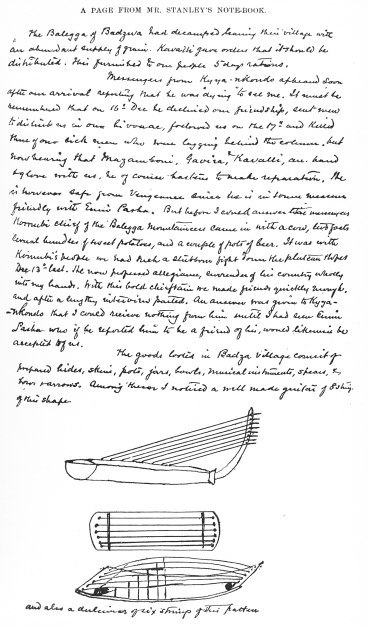 A PAGE FROM MR. STANLEY'S NOTE-BOOK.
The Balegga of Badzwa had decamped leaving their village with
an abundant supply of grain. Kavalli gave orders that it should be
distributed. This furnished to our people 5 days rations.
Messengers from Kyya-nkondo appeared soon
after our arrival reporting that he was "dying" to see me. It must be
remembered that on 16th Dec he declined our friendship, sent men
to disturb us in our bivouac, followed us on the 17th and killed
three of our sick men who were lagging behind the column, but
now hearing that Mazamboni, Gavira, Kavalli, are hand
& glove with us, he of course hastens to make reparation. He
is however safe from vengeance since he is in some measure
friendly with Emin Pasha. But before I could answer these messengers
Komubi chief of the Balegga mountaineers came in with a cow, two goats
several bundles of sweet potatoes, and a couple of pots of beer. It was with
Komubi's people we had such a stubborn fight on the plateau slopes
Dec 13th last. He now proposed allegiance, surrender of his country wholly
into my hands. With this bold chieftain we made friends quickly enough.
and after a lengthy interview parted. An answer was given to Kyya-
-nkondo that I could recieve nothing from him until I had seen Emin
Pasha who if he reported him to be a friend of his, would likewise be
accepted by us.
The goods looted in Badzwa village consist of
prepared hides, skins, pots, jars, bowls, musical instruments, spears, &
bows & arrows. Among these I noticed a well made guitar of 8 strings
of this shape
and also a dulcimer of six strings of this pattern